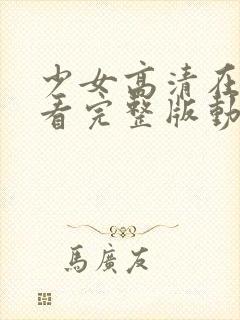 少女高清在
看完整版動
馬廣友